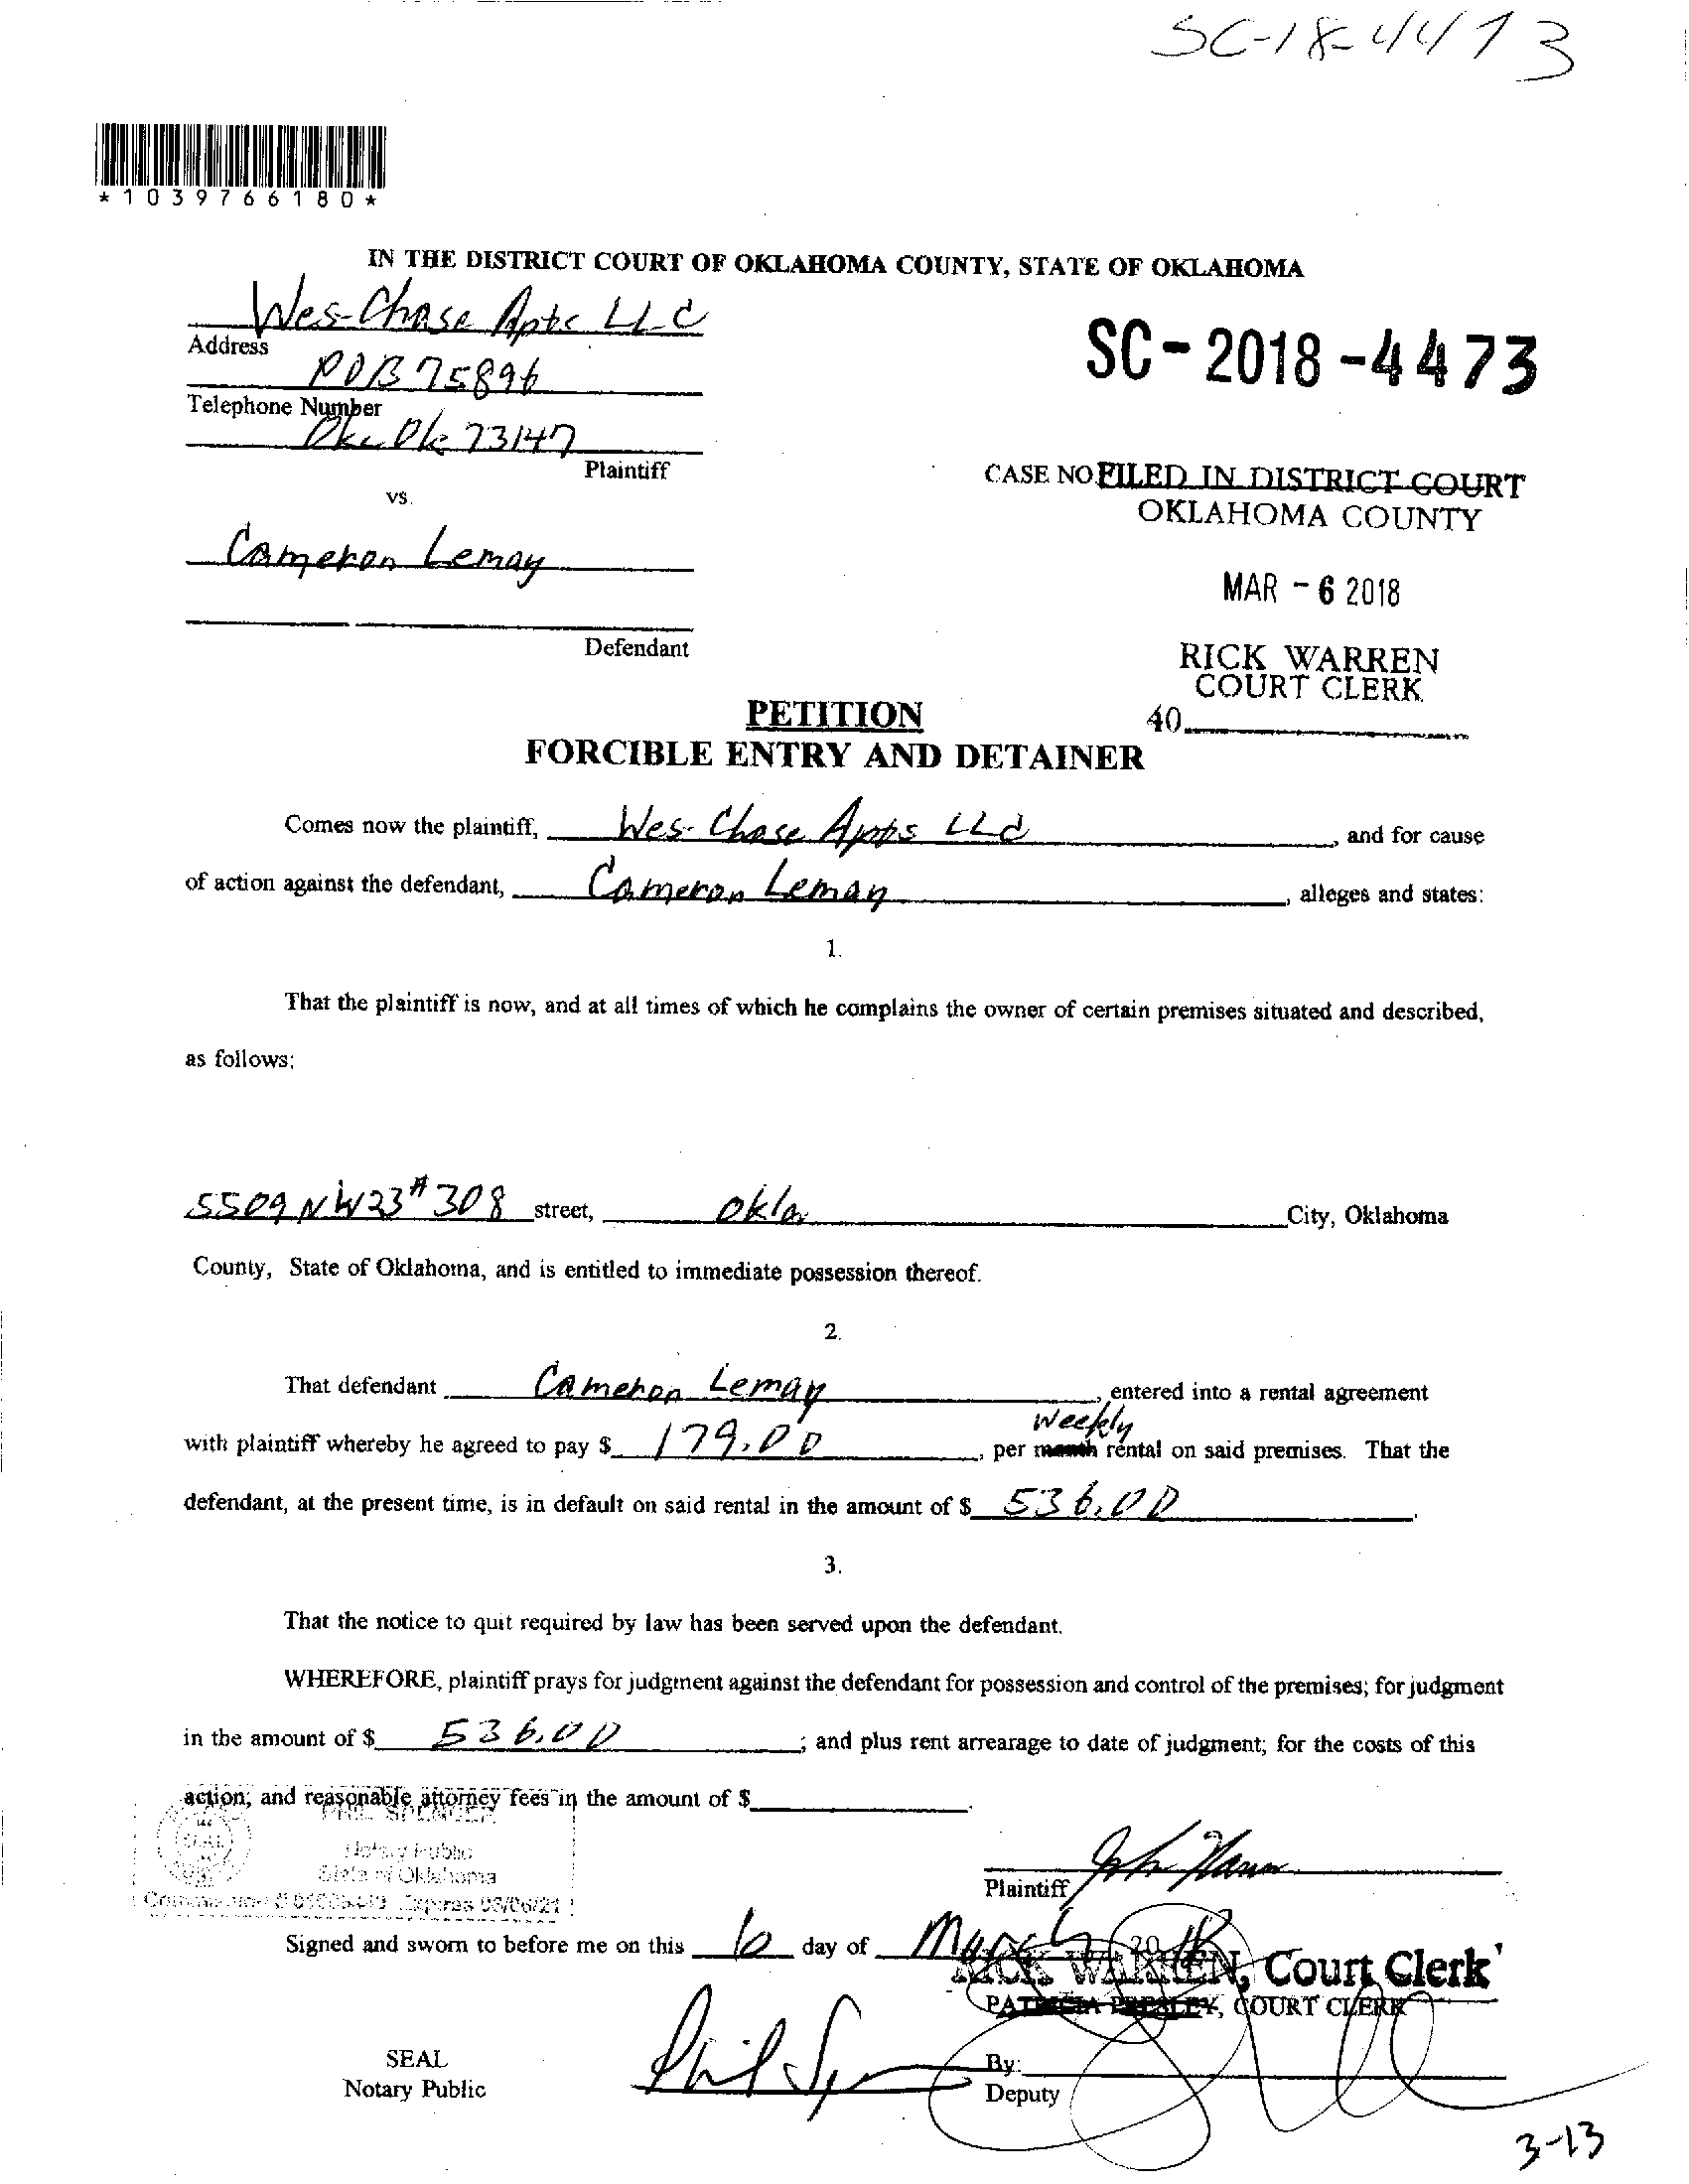 SC-18-4473
*1039766180*
IN THE DISTRICT COURT OF OKLAHOMA COUNTY, STATE OF OKLAHOMA
Wes-Chase Apts LLC
Address
POB 75896
SC-2018-4473
Telephone Number
Okc Ok 73147
Plaintiff
CASE NO. FILED IN DISTRICT COURT
OKLAHOMA COUNTY
vs.
Cameron Lemay
MAR - 6 2018
Defendant
RICK WARREN
COURT CLERK
40
PETITION
FORCIBLE ENTRY AND DETAINER
Comes now the plaintiff, Wes-Chase Apts LLC, and for cause
of action against the defendant, Cameron Lemay, alleges and states:
1.
That the plaintiff is now, and at all times of which he complains the owner of certain premises situated and described,
as follows:
5509 NW23 #308 street, Okla City, Oklahoma
County, State of Oklahoma, and is entitled to immediate possession thereof.
2.
That defendant Cameron Lemay, entered into a rental agreement
Weekly
with plaintiff whereby he agreed to pay $ 179.00, per month rental on said premises. That the
defendant, at the present time, is in default on said rental in the amount of $ 536.00.
3.
That the notice to quit required by law has been served upon the defendant.
WHEREFORE, plaintiff prays for judgment against the defendant for possession and control of the premises; for judgment
in the amount of $ 536.00; and plus rent arrearage to date of judgment; for the costs of this
action; and reasonable attorney fees in the amount of $
PHIL SPENCER
SEAL
Notary Public
State of Oklahoma
Expires 03/06/21
Plaintiff
Signed and sworn to before me on this 6 day of March 2018
RICK WARREN, Court Clerk
PATRICIA PRESLEY, COURT CLERK
SEAL
Notary Public
By:
Deputy
3-13